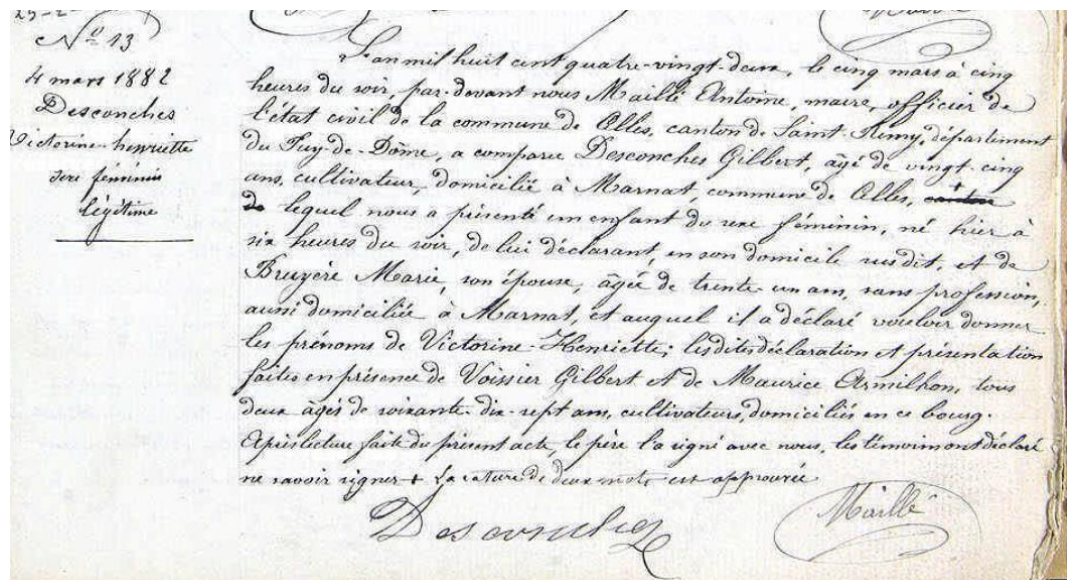 Nº 13
4 mars 1882
Desconches
Victorine henriette
sexe féminin
légitime
L'an mil huit cent quatre-vingt-deux, le cinq mars à cinq
heures du soir, par-devant nous Maillé Antoine, maire, officier de
l'état civil de la commune de Olles, canton de Saint-Remy, département
du Puy-de-Dôme, a comparu Desconches Gilbert, âgé de vingt-cinq
ans, cultivateur, domicilié à Marnat, commune de Olles, + canton
de lequel nous a présenté un enfant du sexe féminin, né hier à
six heures du soir, de lui déclarant, en son domicile susdit, et de
Bruyère Marie, son épouse, âgée de trente-un ans, sans profession,
aussi domiciliée à Marnat, et auquel il a déclaré vouloir donner
les prénoms de Victorine Henriette; lesdites déclaration et présentation
faites en présence de Voissier Gilbert et de Maurice Armilhon, tous
deux âgés de soixante-dix-sept ans, cultivateurs, domiciliés en ce bourg.
Après lecture faite du présent acte, le père l'a signé avec nous, les témoins ont déclaré
ne savoir signer + La rature de deux mots est approuvée
Desconches
Maillé